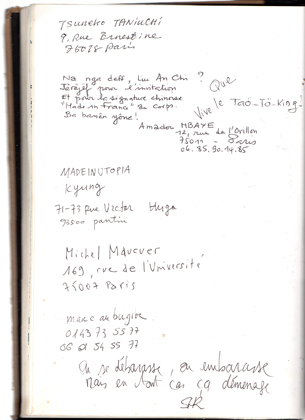 Tsuneko TANIUCHI
9, Rue Ernestine
75018 Paris
Na nga deff, Liu An Chi ?
Jërejëf pour l'invitation
Et pour la signature chinoise
"Made in France" de Corps.
Ba benën yône!
Que
Vive le Tao-Tö-King!
Amadou MBAYE
12, rue de l'Orillon
75011 - Paris
06.85.90.14.85
MADEINUTOPIA
Kyung
71-73 Rue Victor Hugo
93500 pantin
Michel
169, rue de l'Université
75007 Paris
marc
0143 73 55 77
06 61 54 55 77
On se débarasse, on embarasse
Mais en tout cas ça déménage